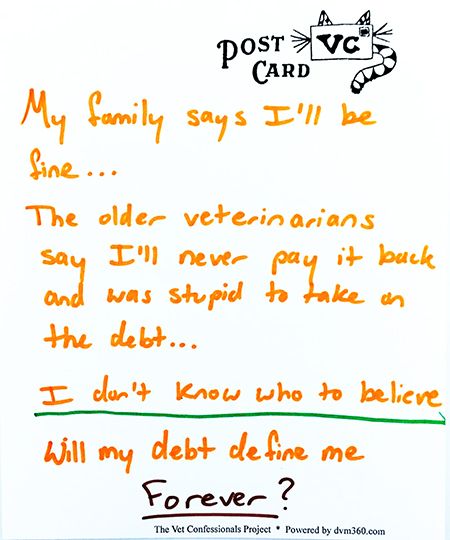 POST
CARD
VC
My family says I'll be
fine...
The older veterinarians
say I'll never pay it back
and was stupid to take on
the debt...
I don't know who to believe
Will my debt define me
Forever?
The Vet Confessionals Project * Powered by dvm360.com